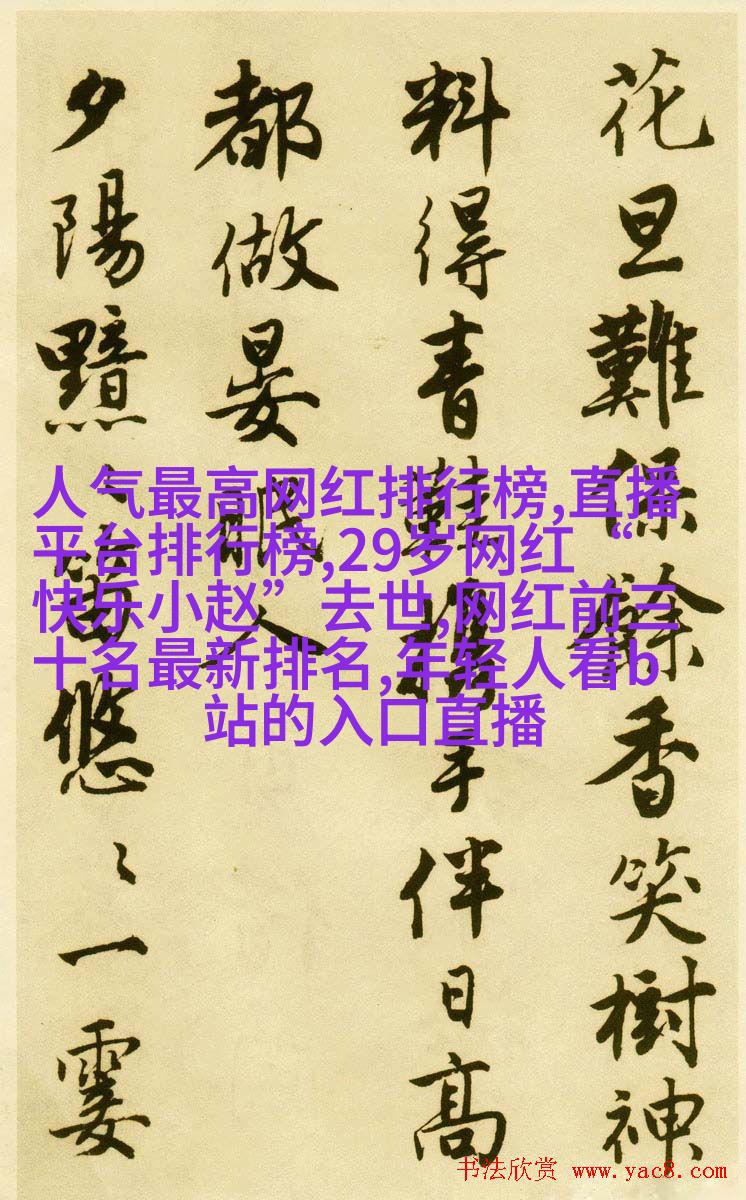 花旦難保餘香笑樹神
料得青鞋攜手伴日高
都做晏眠人
夕陽黯〻笛悠〻一霎
人气最高网红排行榜,直播
平台排行榜,29岁网红“
快乐小赵”去世,网红前三
十名最新排名,年轻人看b
站的入口直播
书法欣赏 www.yac8.com